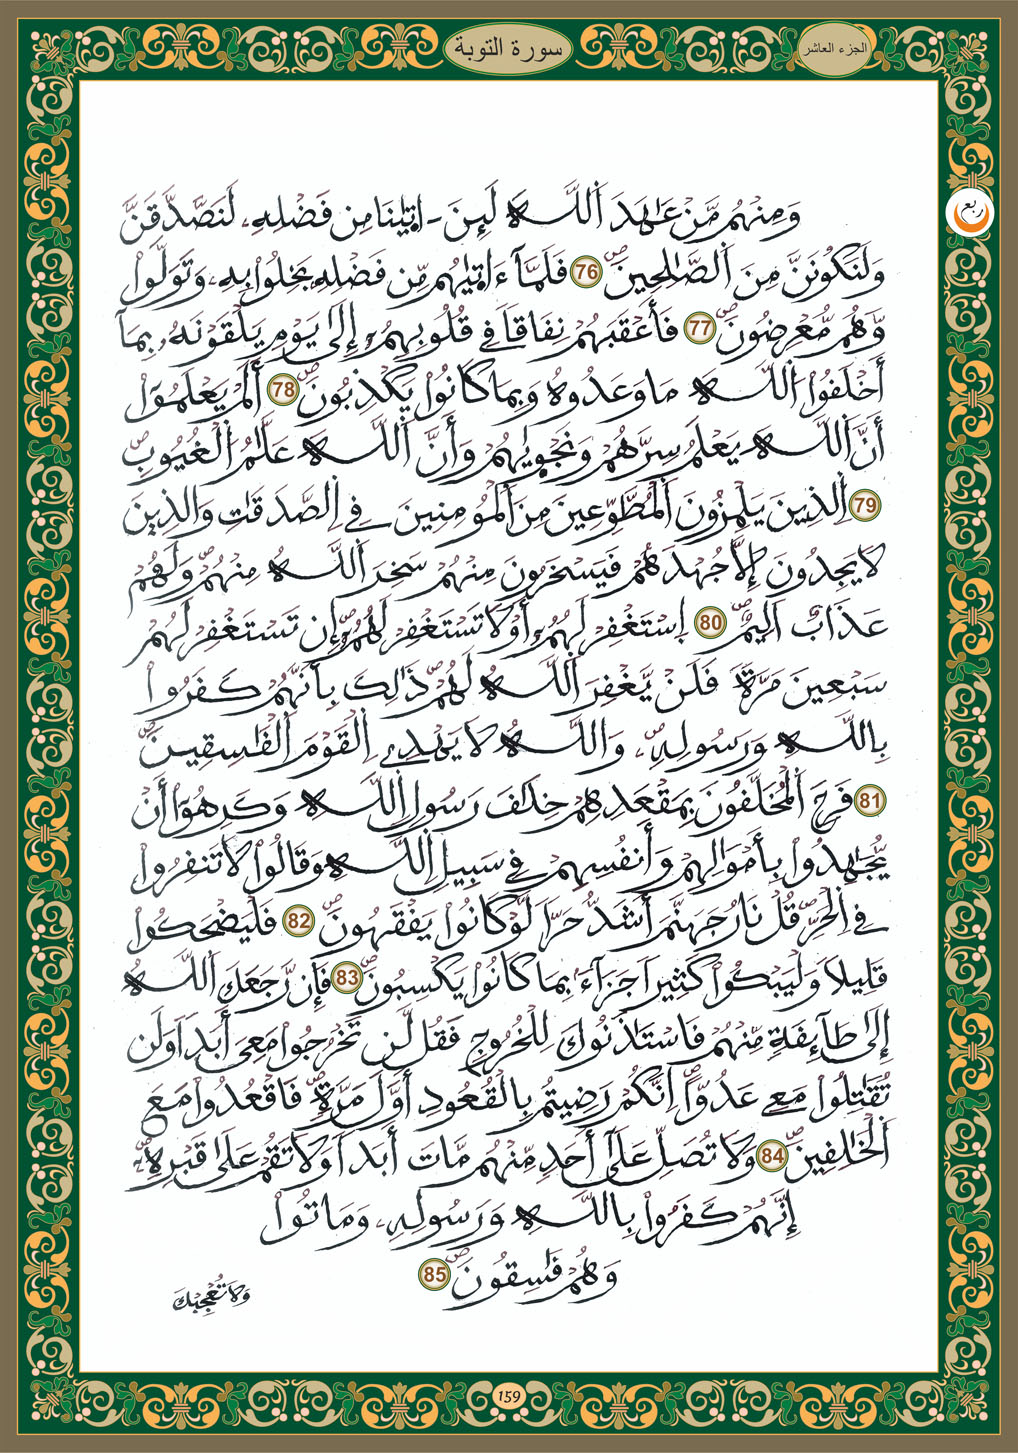 الجزء العاشر
سورة التوبة
ربع
وَمِنْهُم مَّنْ عَٰهَدَ اَ۬للَّهَ لَئِنَ اٰت۪يٰنَا مِن فَضْلِهِۦ لَنَصَّدَّقَنَّ
وَلَنَكُونَنَّ مِنَ اَ۬لصَّٰلِحِينَۖ 76 فَلَمَّآ ءَات۪يٰهُم مِّن فَضْلِهِۦ بَخِلُوا۟ بِهِۦ وَتَوَلَّوا۟
وَّهُم مُّعْرِضُونَۖ 77 فَأَعْقَبَهُمْ نِفَاقاٗ فِے قُلُوبِهِمُۥٓ إِلَىٰ يَوْمِ يَلْقَوْنَهُۥ بِمَآ
أَخْلَفُوا۟ اُ۬للَّهَ مَا وَعَدُوهُ وَبِمَا كَانُوا۟ يَكْذِبُونَۖ 78 أَلَمْ يَعْلَمُوٓا۟
أَنَّ اَ۬للَّهَ يَعْلَمُ سِرَّهُمْ وَنَجْو۪يٰهُمْ وَأَنَّ اَ۬للَّهَ عَلَّٰمُ اُ۬لْغُيُوبِۖ
79 اِ۬لذِينَ يَلْمِزُونَ اَ۬لْمُطَّوِّعِينَ مِنَ اَ۬لْمُومِنِينَ فِے اِ۬لصَّدَقَٰتِ وَالذِينَ
لَا يَجِدُونَ إِلَّا جُهْدَهُمْ فَيَسْخَرُونَ مِنْهُمْ سَخِرَ اَ۬للَّهُ مِنْهُمْۖ وَلَهُمْ
عَذَابٌ اَلِيمٌۖ 80 اِ۪سْتَغْفِرْ لَهُمُۥٓ أَوْ لَا تَسْتَغْفِرْ لَهُمُۥٓۖ إِن تَسْتَغْفِرْ لَهُمْ
سَبْعِينَ مَرَّةٗ فَلَنْ يَّغْفِرَ اَ۬للَّهُ لَهُمْۖ ذَٰلِكَ بِأَنَّهُمْ كَفَرُوا۟
بِاللَّهِ وَرَسُولِهِۦۖ وَاللَّهُ لَا يَهْدِے اِ۬لْقَوْمَ اَ۬لْفَٰسِقِينَۖ
81 فَرِحَ اَ۬لْمُخَلَّفُونَ بِمَقْعَدِهِمْ خِلَٰفَ رَسُولِ اِ۬للَّهِ وَكَرِهُوٓا۟ أَنْ
يُّجَٰهِدُوا۟ بِأَمْوَٰلِهِمْ وَأَنفُسِهِمْ فِے سَبِيلِ اِ۬للَّهِ وَقَالُوا۟ لَا تَنفِرُوا۟
فِے اِ۬لْحَرِّۖ قُلْ نَارُ جَهَنَّمَ أَشَدُّ حَرّاٗ لَّوْ كَانُوا۟ يَفْقَهُونَۖ 82 فَلْيَضْحَكُوا۟
قَلِيلاٗ وَلْيَبْكُوا۟ كَثِيراٗ جَزَآءَۢ بِمَا كَانُوا۟ يَكْسِبُونَۖ 83 فَإِن رَّجَعَكَ اَ۬للَّهُ
إِلَىٰ طَآئِفَةٖ مِّنْهُمْ فَاسْتَٰذَنُوكَ لِلْخُرُوجِ فَقُل لَّن تَخْرُجُوا۟ مَعِيَ أَبَداٗ وَلَن
تُقَٰتِلُوا۟ مَعِے عَدُوّاًۖ اِنَّكُمْ رَضِيتُم بِالْقُعُودِ أَوَّلَ مَرَّةٖۖ فَاقْعُدُوا۟ مَعَ
اَ۬لْخَٰلِفِينَۖ 84 وَلَا تُصَلِّ عَلَىٰٓ أَحَدٖ مِّنْهُم مَّاتَ أَبَداٗ وَلَا تَقُمْ عَلَىٰ قَبْرِهِۦٓۖ
إِنَّهُمْ كَفَرُوا۟ بِاللَّهِ وَرَسُولِهِۦ وَمَاتُوا۟
وَهُمْ فَٰسِقُونَۖ 85
وَلَا تُعْجِبْكَ
159